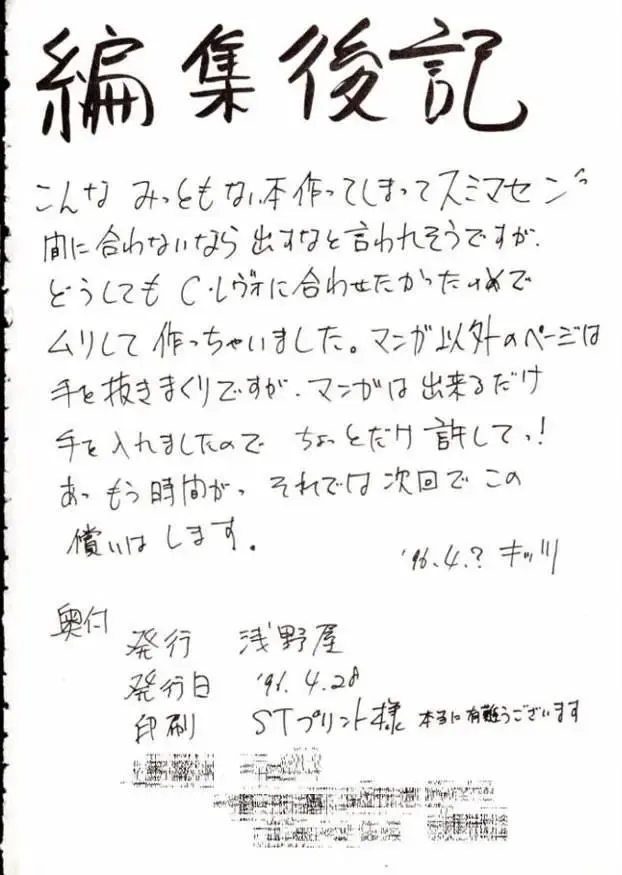 編集後記
こんな みっともない本作ってしまってスミマセン
間に合わないなら 出すなと言われそうですが、
どうしても C・レヴォに合わせたかったので
ムリして 作っちゃいました。マンガ以外のページは
手を抜きまくりですが、マンガは出来るだけ
手を入れましたので ちょっとだけ 許してっ!
あっ もう時間がっ それでは次回で この
償いは します。
'96.4.? キッツ
奥付
発行 浅野屋
発行日 '96.4.28
印刷 STプリント様 本当に有難うございます